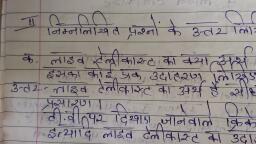 II निम्नलिखित प्रश्नों के उत्तर लि
क. लाइव टेलीकास्ट का क्या अर्थ
इसका कोई एक उदाहरण लिखिए
उत्तर- लाइव टेलीकास्ट का अर्थ है सी
प्रसारण।
टी.वी पर दिखाए जानेवाले क्रिके
इत्यादि लाइव टेलीकास्ट का उदा